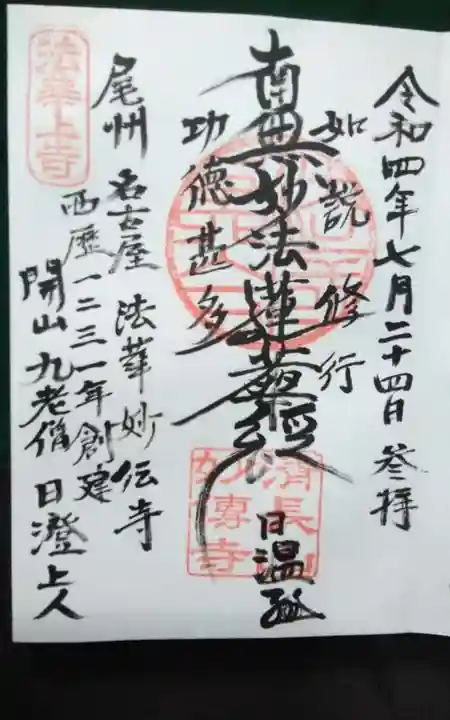 令和四年七月二十四日 参拝
如説修行
南無妙法蓮華経
日温
功徳甚多
尾州 名古屋 法華妙伝寺
西暦一二三一年創建
開山 九老僧 日澄上人
妙傳寺